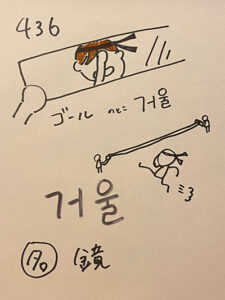 436
ゴール のとこ 거울
거울
名 鏡